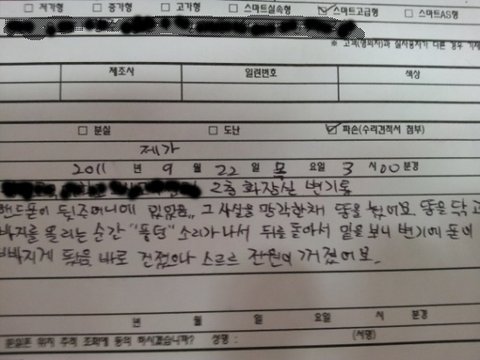 □ 저가형 □ 중가형 □ 고가형 □ 스마트실속형 ☑ 스마트고급형 □ 스마트AS형
※ 고객(명의자)과 실사용자가 다른 경우 기재
제조사 일련번호 색상
□ 분실 □ 도난 ☑ 파손(수리견적서 첨부)
제가
2011 년 9 월 22 일 목 요일 3 시 00 분경
2층 화장실 변기옥
핸드폰이 뒷주머니에 있었음,, 그 사실을 망각한채 똥을 쌌어요. 똥을 닦고
바지를 올리는 순간 "퐁당" 소리가 나서 뒤를 돌아서 밑을 보니 변기에 폰이
빠지게 됐음 바로 건졌으나 스르르 전원이 꺼졌어요.
년 월 일 요일 시 분경
분실폰 위치 추적 조회에 동의 하시겠습니까? 성명 : (서명)